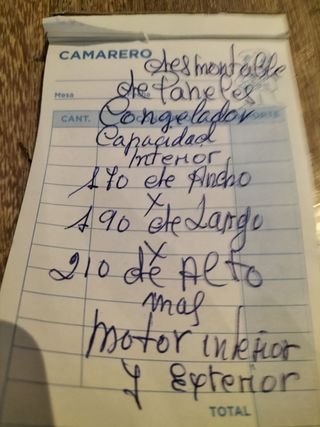 CAMARERO desmontable
Mesa de Paneles
CANT. Congelador
Capacidad
Interior
170 de Ancho
X
190 de Largo
X
210 de Alto
mas
motor interior
y Exterior
TOTAL